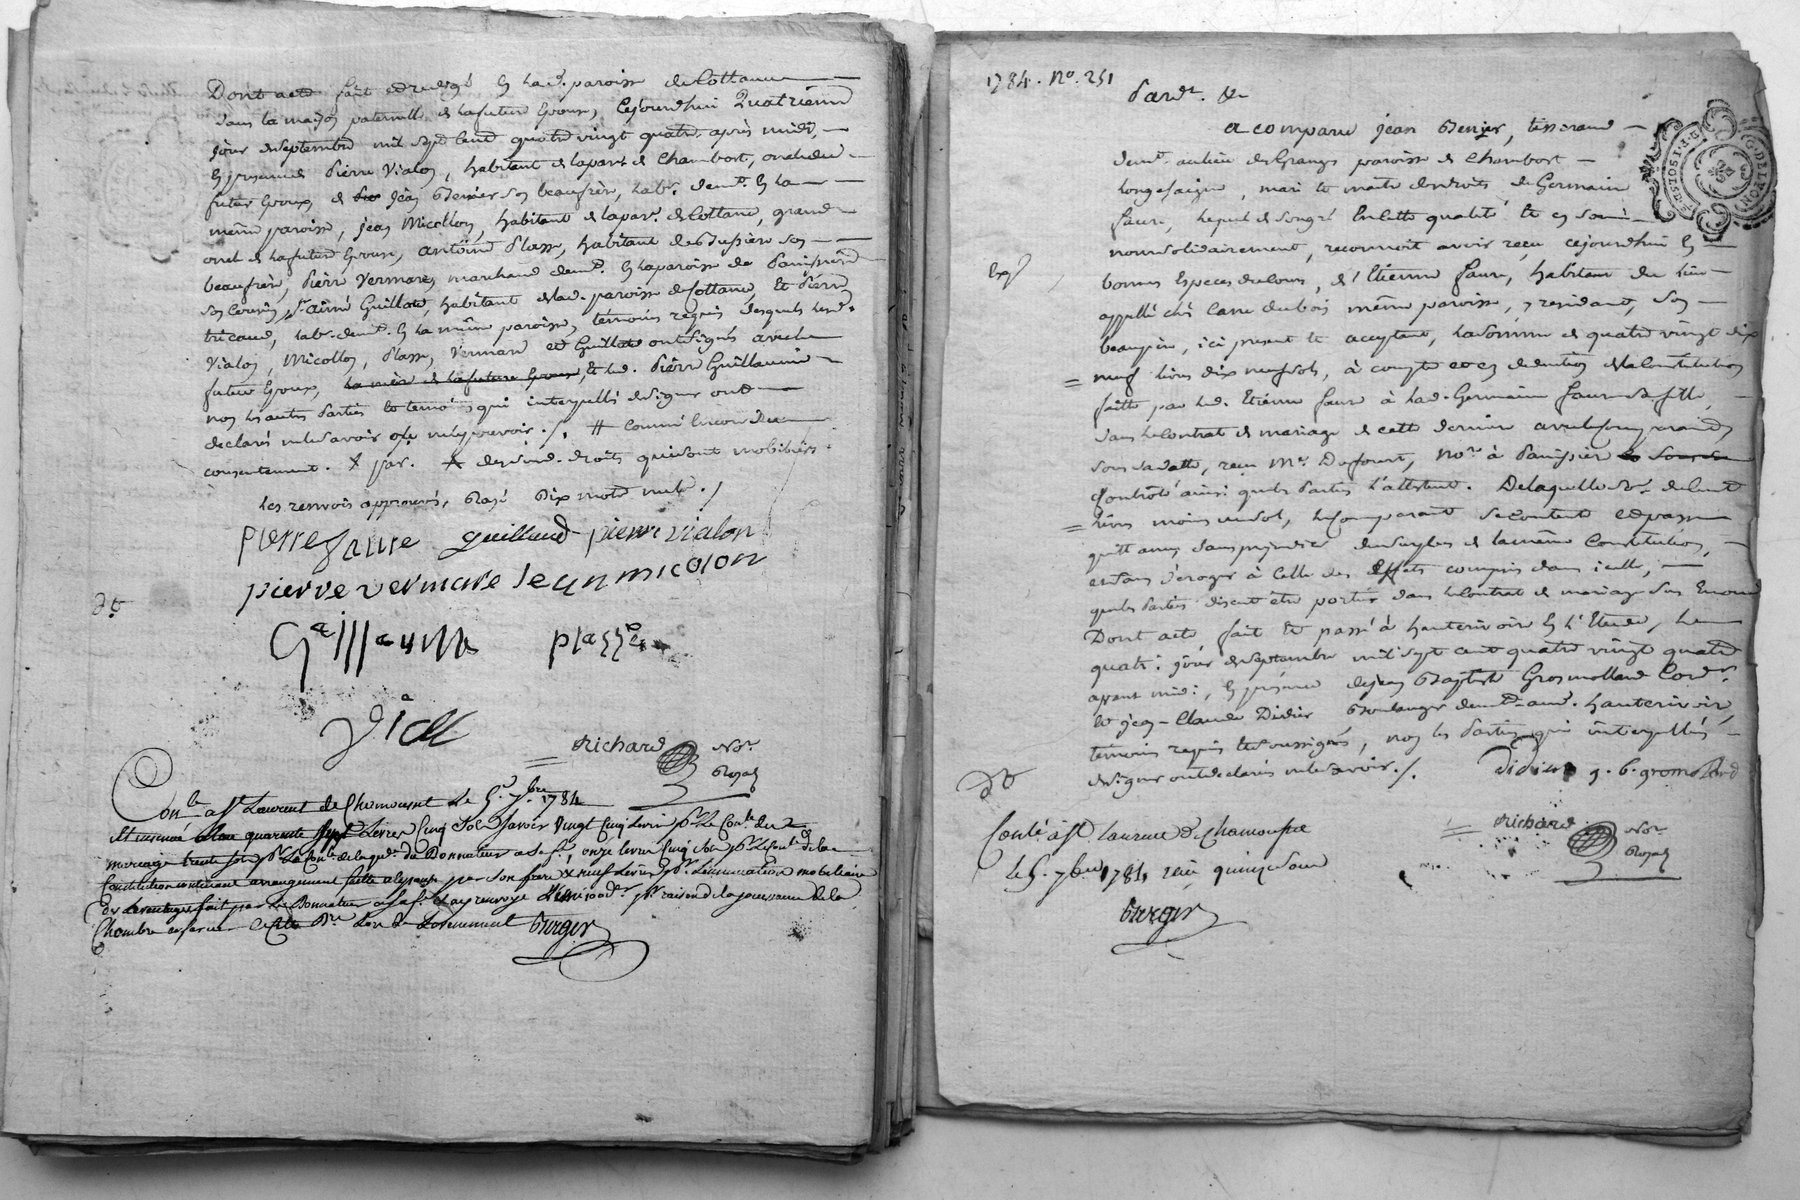 Dont acte fait et redigé en lad. paroisse de Cottance
dans la maison paternelle de la future Epouse, Cejourdhui Quatrieme
jour de septembre mil sept cent quatre vingt quatre, après midi,
En presence de Pierre Vialon, habitant de la parr. de Chambost, oncle du
futur Epoux, de Jean Berrier son beaufrere, hab. demt. En la
même paroisse, Jean Micollon, habitant de la par. de Cottance, grand
oncle de la future Epouse, Antoine Plasse, habitant de Bussiere son
beaufrère, Pierre Vermare marchand demt. En la paroisse de Panissiere
son Cousin, Sr. aimé Guillaud, habitant de lad. paroisse de Cottance, Et Pierre
tricaud, hab. demt. En la même paroisse, témoins requis desquels lesd.
Vialon, Micollon, Plasse, Vermare et Guillaud ont signés avec le
futur Epoux, la mère de la future Epouse, Et led. Pierre Guillaume
non les autres Parties et temoins qui interpellés de signer ont
declarés ne le savoir
consentement. X par. droits qui sont mobiliers.
les renvois approuvés, Rayé Dix mots nuls ./
pierre faure guillaud pierre vialon
pierre vermare Jean micolon
Guillaume plasse
Viall
Richard Nore.
Royal
Conlé. a St. Laurent de Chamousset Le 5. 7bre. 1784
Et insinué Livres Cinq Sols Savoir Vingt Cinq Livres pr. Le Conle. du
mariage trente sols pr. Le Conle. de la qu. du Donnateur a sa fe., onze livres Cinq Sols pr. Le Conle. de la
Constitution contenant arrangement faitte par son frere & neuf Livres pr. L'insinuation mobiliaire
de Lavantage fait par Le Donnateur a sa fe. pr. raison de la jouissance de la
Chambre
Berger
1784. No. 251
Pardt. &c
a comparu jean Berrier, tisserand
demt. au lieu des Granges paroisse de Chambost
Longesaigne, mari et maitre des droits de Germaine
faure, lequel de son gré En cette qualité et en son
nom solidairement, reconnoit avoir reçu cejourdhui En
Exp.
bonnes Especes du Cours, d'Etienne faure, habitant du lieu
appellé chés Carre dubois même paroisse, y residant, son
beaupère, ici présent et acceptant, la somme de quatre vingt dix
neuf livres dix neuf sols, à compte et en deduction de la Constitution
faitte par led. Etienne faure à lad. Germaine faure sa fille,
dans le Contrat de mariage de cette derniere avec le Comparant,
sous sa datte, reçu Me. Dufourt, Nore. à Panissiere
Controlé ainsi que les Parties l'attestent. De laquelle Se. de Cent
livres moins un sol, le Comparant se contente et passe
quittance, sans prejudice du surplus de la même Constitution,
et sans déroger à Celle des Effets compris dans icelle,
que les Parties disent être portés dans le Contrat de mariage sus Enoncé
Dont acte fait et passé à hauterivoire En l'Etude, Le
quatre. jour de septembre mil sept cent quatre vingt quatre
avant midi, En présence de jean Baptiste Grosmollard Cordr.
et jean-Claude Didier Boulanger demt. aud. hauterivoire,
temoins requis et soussignés, non les Parties qui interpellés
de signer ont declarés ne le savoir ./.
Didier j. b. gromollard
Richard Nore.
Royal
Conlé à St. Laurent de Chamousset
le 5. 7bre 1784, reçu quinze sous
Berger